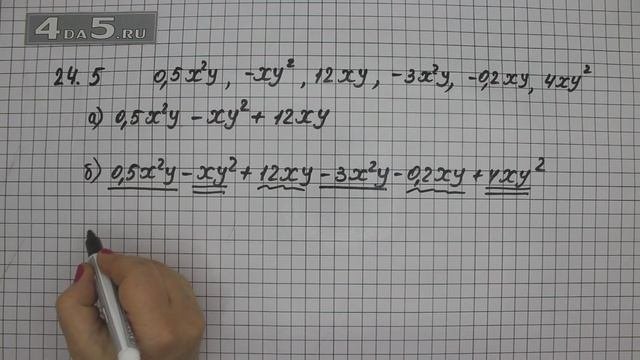 4DA5.RU
24.5 0,5x²y, -xy², 12xy, -3x²y, -0,2xy, 4xy²
а) 0,5x²y - xy² + 12xy
б) 0,5x²y - xy² + 12xy - 3x²y - 0,2xy + 4xy²